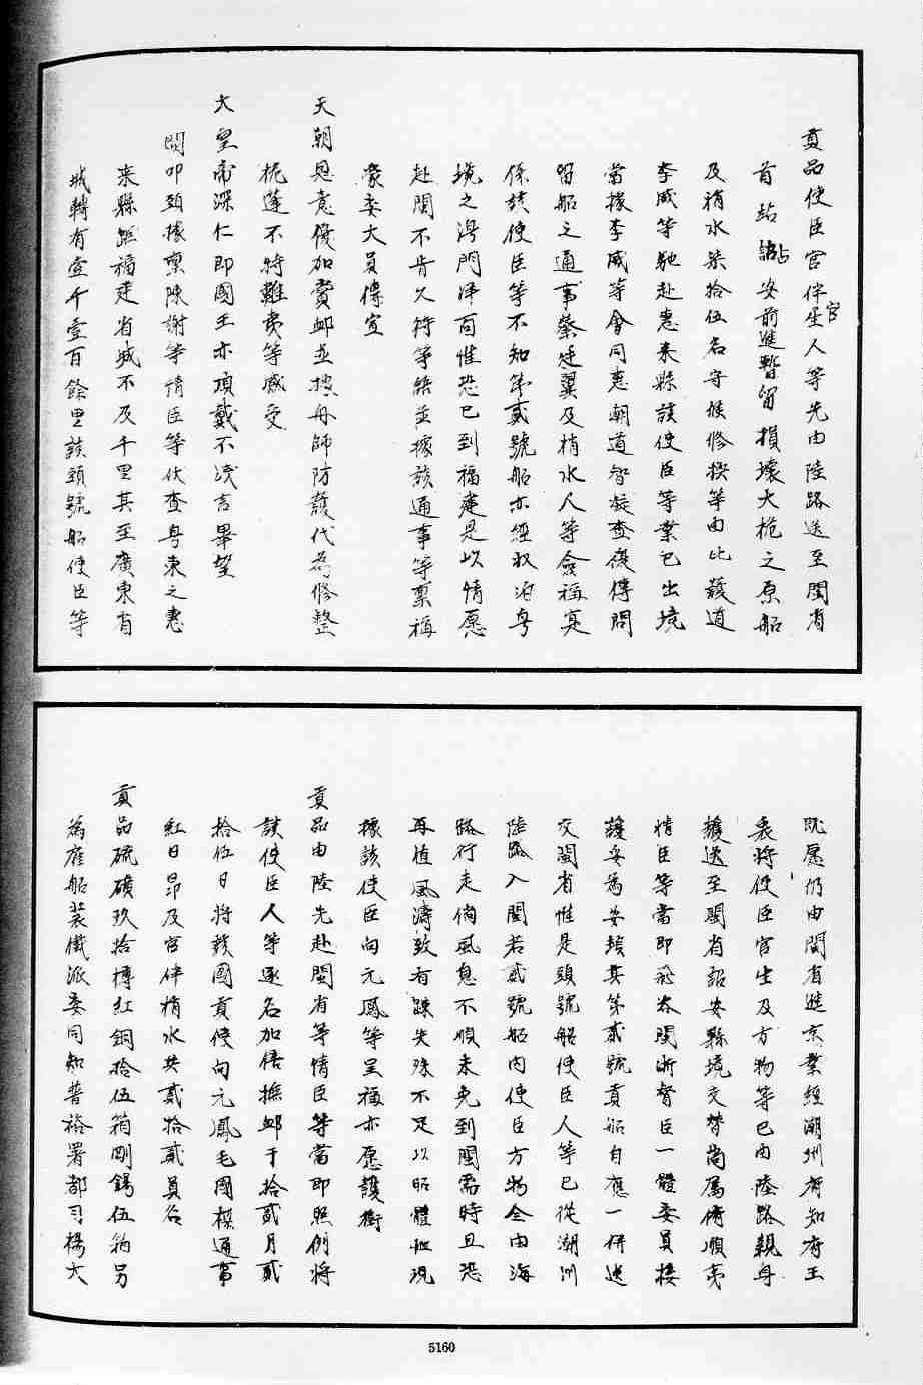 貢品使臣官伴生官人等先由陸路送至閩省
首站詔安前進暫留損壞大桅之原船
及梢水柒拾伍名守候修換等由比護道
李威等馳赴惠来縣該使臣等業已出境
當據李威等會同惠潮道智凝查復傳問
留船之通事蔡廷翼及梢水人等僉稱寔
係該使臣等不知第貳號船亦經收泊粤
境之灣門洋面惟恐已到福建是以情愿
赴閩不肯久待等語並據該通事等禀稱
蒙委大員傳宣
天朝恩意優加賞卹並撥舟師防護代為修整
桅蓬不特難夷等感受
大皇帝深仁即國王亦頂戴不淺言畢望
闕叩頭據禀陳謝等情臣等伏查粤東之惠
来縣距福建省城不及千里其至廣東省
城轉有壹千壹百餘里該頭號船使臣等
既愿仍由閩省進京業經潮州府知府王
裊將使臣官生及方物等已由陸路親身
護送至閩省詔安縣境交替尚属俯順夷
情臣等當即飛咨閩浙督臣一體委員接
護妥為安頓其第貳號貢船自應一併送
交閩省惟是頭號船使臣人等已從潮州
陸路入閩若貳號船内使臣方物仝由海
路行走倘風息不順未免到閩需時且恐
再值風濤致有疎失殊不足以昭體恤況
據該使臣向元鳳等呈稱亦愿護衛
貢品由陸先赴閩省等情臣等當即照例將
該使臣人等逐名加倍撫卹于拾貳月貳
拾伍日將該國貢使向元鳳毛國棟通事
紅日昂及官伴梢水共貳拾貳員名
貢品硫磺玖拾樽紅銅拾伍箱剛錫伍箱另
為雇船裝儎派委同知普裕署都司楊大
5160